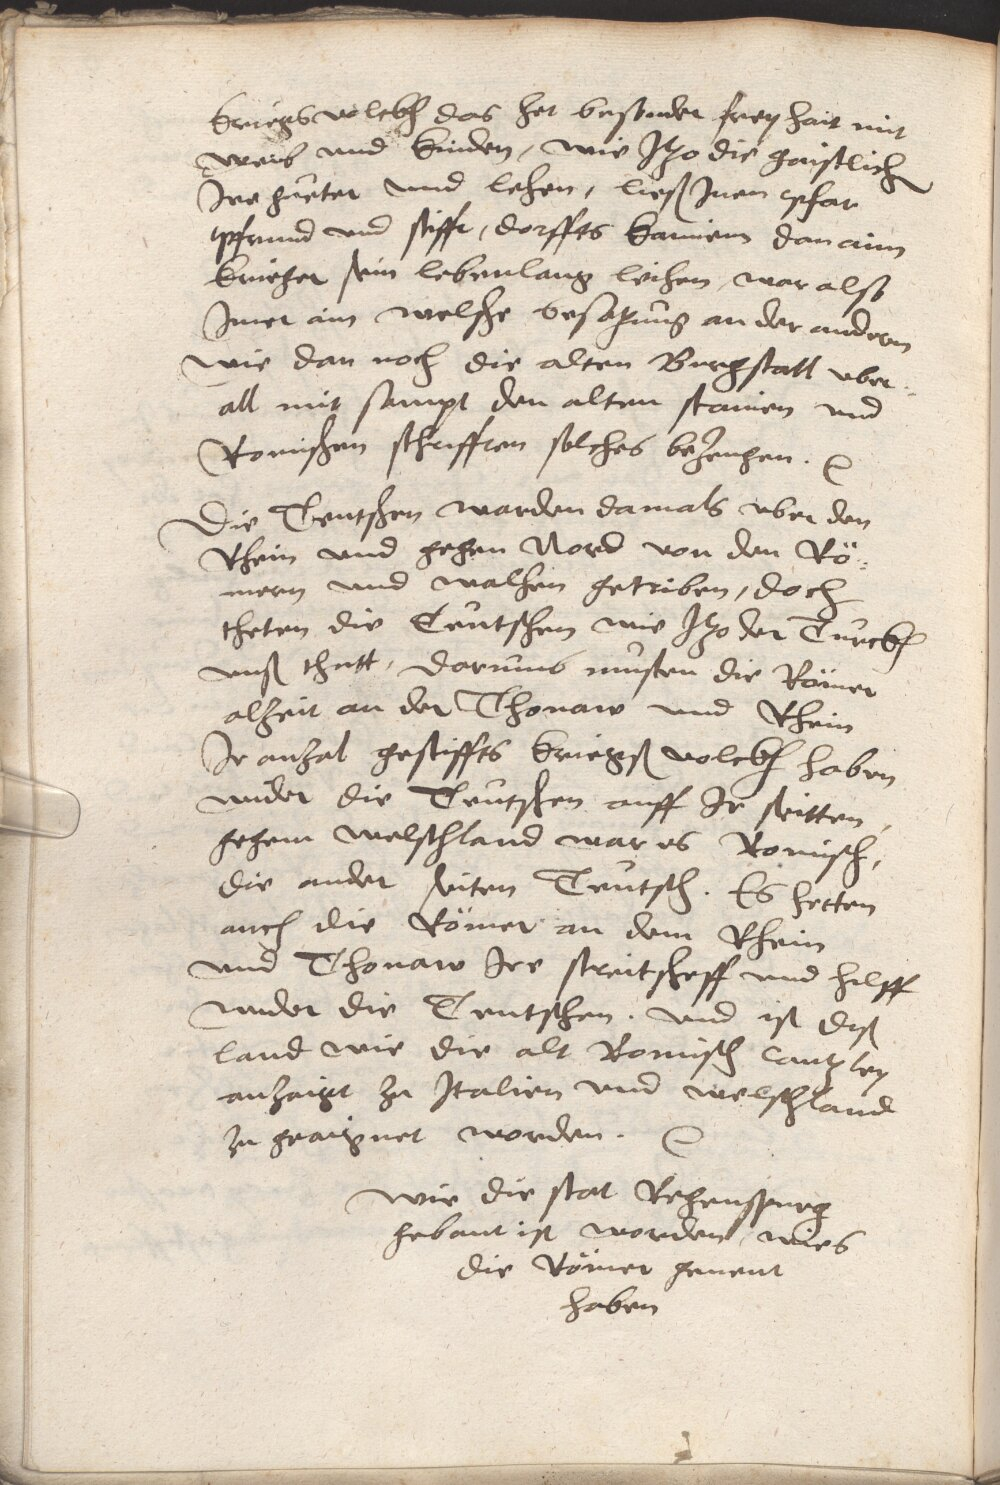 kriegsvolckh das het besonder freyhait mit
weib und kinden, wie Itzo die gaistlich
Ire gueter und lehen, ließ Inen pfar
pfrund und stifft, dorffts kainem dan aim
krieger sein lebenlang leihen, war also
Imer ain welsche besatzung an der andern
wie dan noch die alten Burgstall uber-
all mit sampt den alten stainen und
Romischen schrifften solches bezeugen.
Die Teutschen warden damals uber den
Rhein und gegen Nord von den Rö-
mern und walhen getriben, doch
theten die Teutschen wie Itzo der Turckh
unß thutt, darumb musten die Römer
alzeit an der Thonaw und Rhein
Ir anzal gestiffts kriegß volckh haben
wider die Teutschen auff Ir seitten,
gegem welschland war es Romisch,
die ander seiten Teutsch. Es hetten
auch die Römer an dem Rhein
und Thonaw Ire streitscheff und hilff
wider die Teutschen. und ist diß
land wie die alt Romisch Cantzley
anzaigt zu Italien und welschland
zu geaignet worden.
wie die stat Regenspurg
gebaut ist worden, wies
die Römer genent
haben